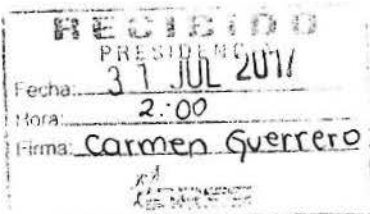 RECIBIDO
PRESIDENCIA
Fecha: 31 JUL 2017
Hora: 2:00
Firma: Carmen Guerrero